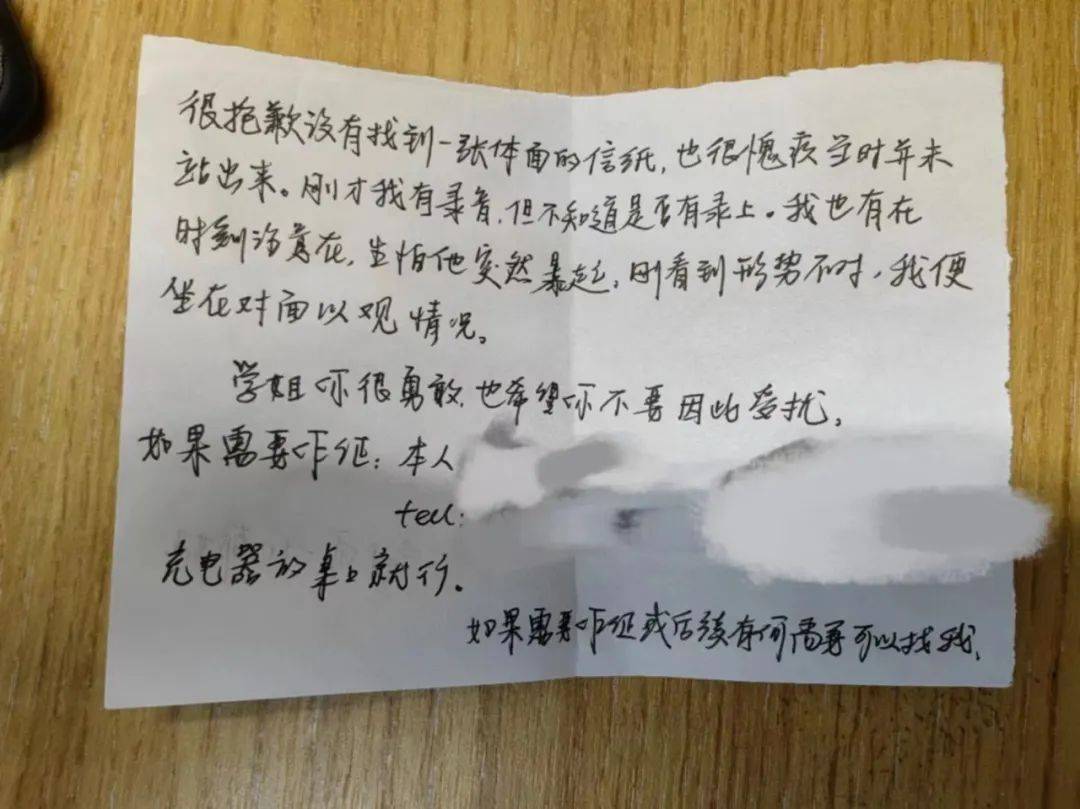 很抱歉没有找到一张体面的信纸，也很愧疚当时并未
站出来。刚才我有录音，但不知道是否有录上。我也有在
时刻注意在，生怕他突然暴起，刚看到形势不对，我便
坐在对面以观情况。
学姐你很勇敢，也希望你不要因此受扰。
如果需要作证：本人
tell：
充电器放桌上就行。
如果需要作证或后续有何需要可以找我。